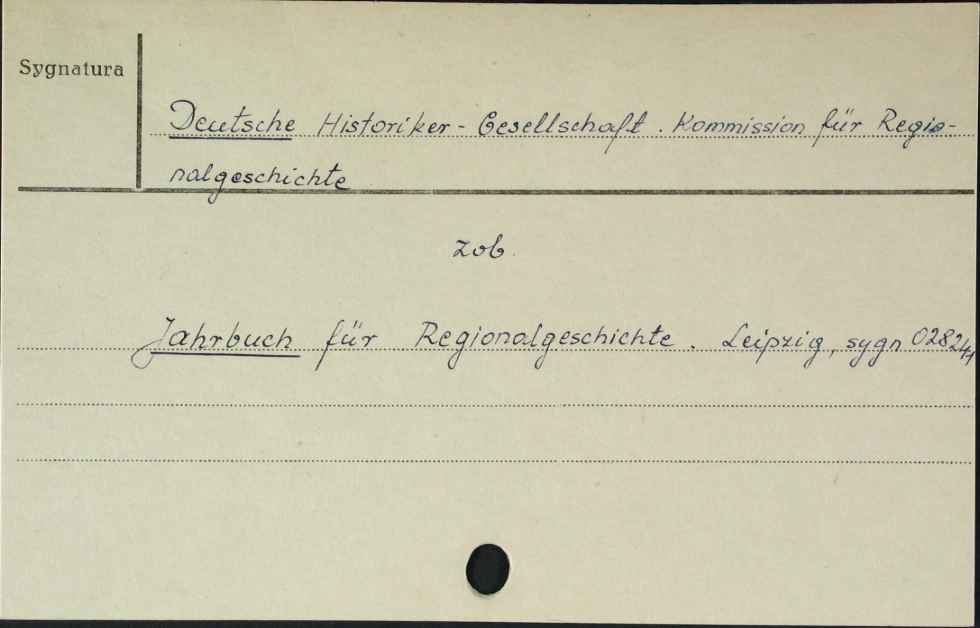 Sygnatura
Deutsche Historiker-Gesellschaft. Kommission für Regio-
nalgeschichte
zob.
Jahrbuch für Regionalgeschichte. Leipzig, sygn 028241